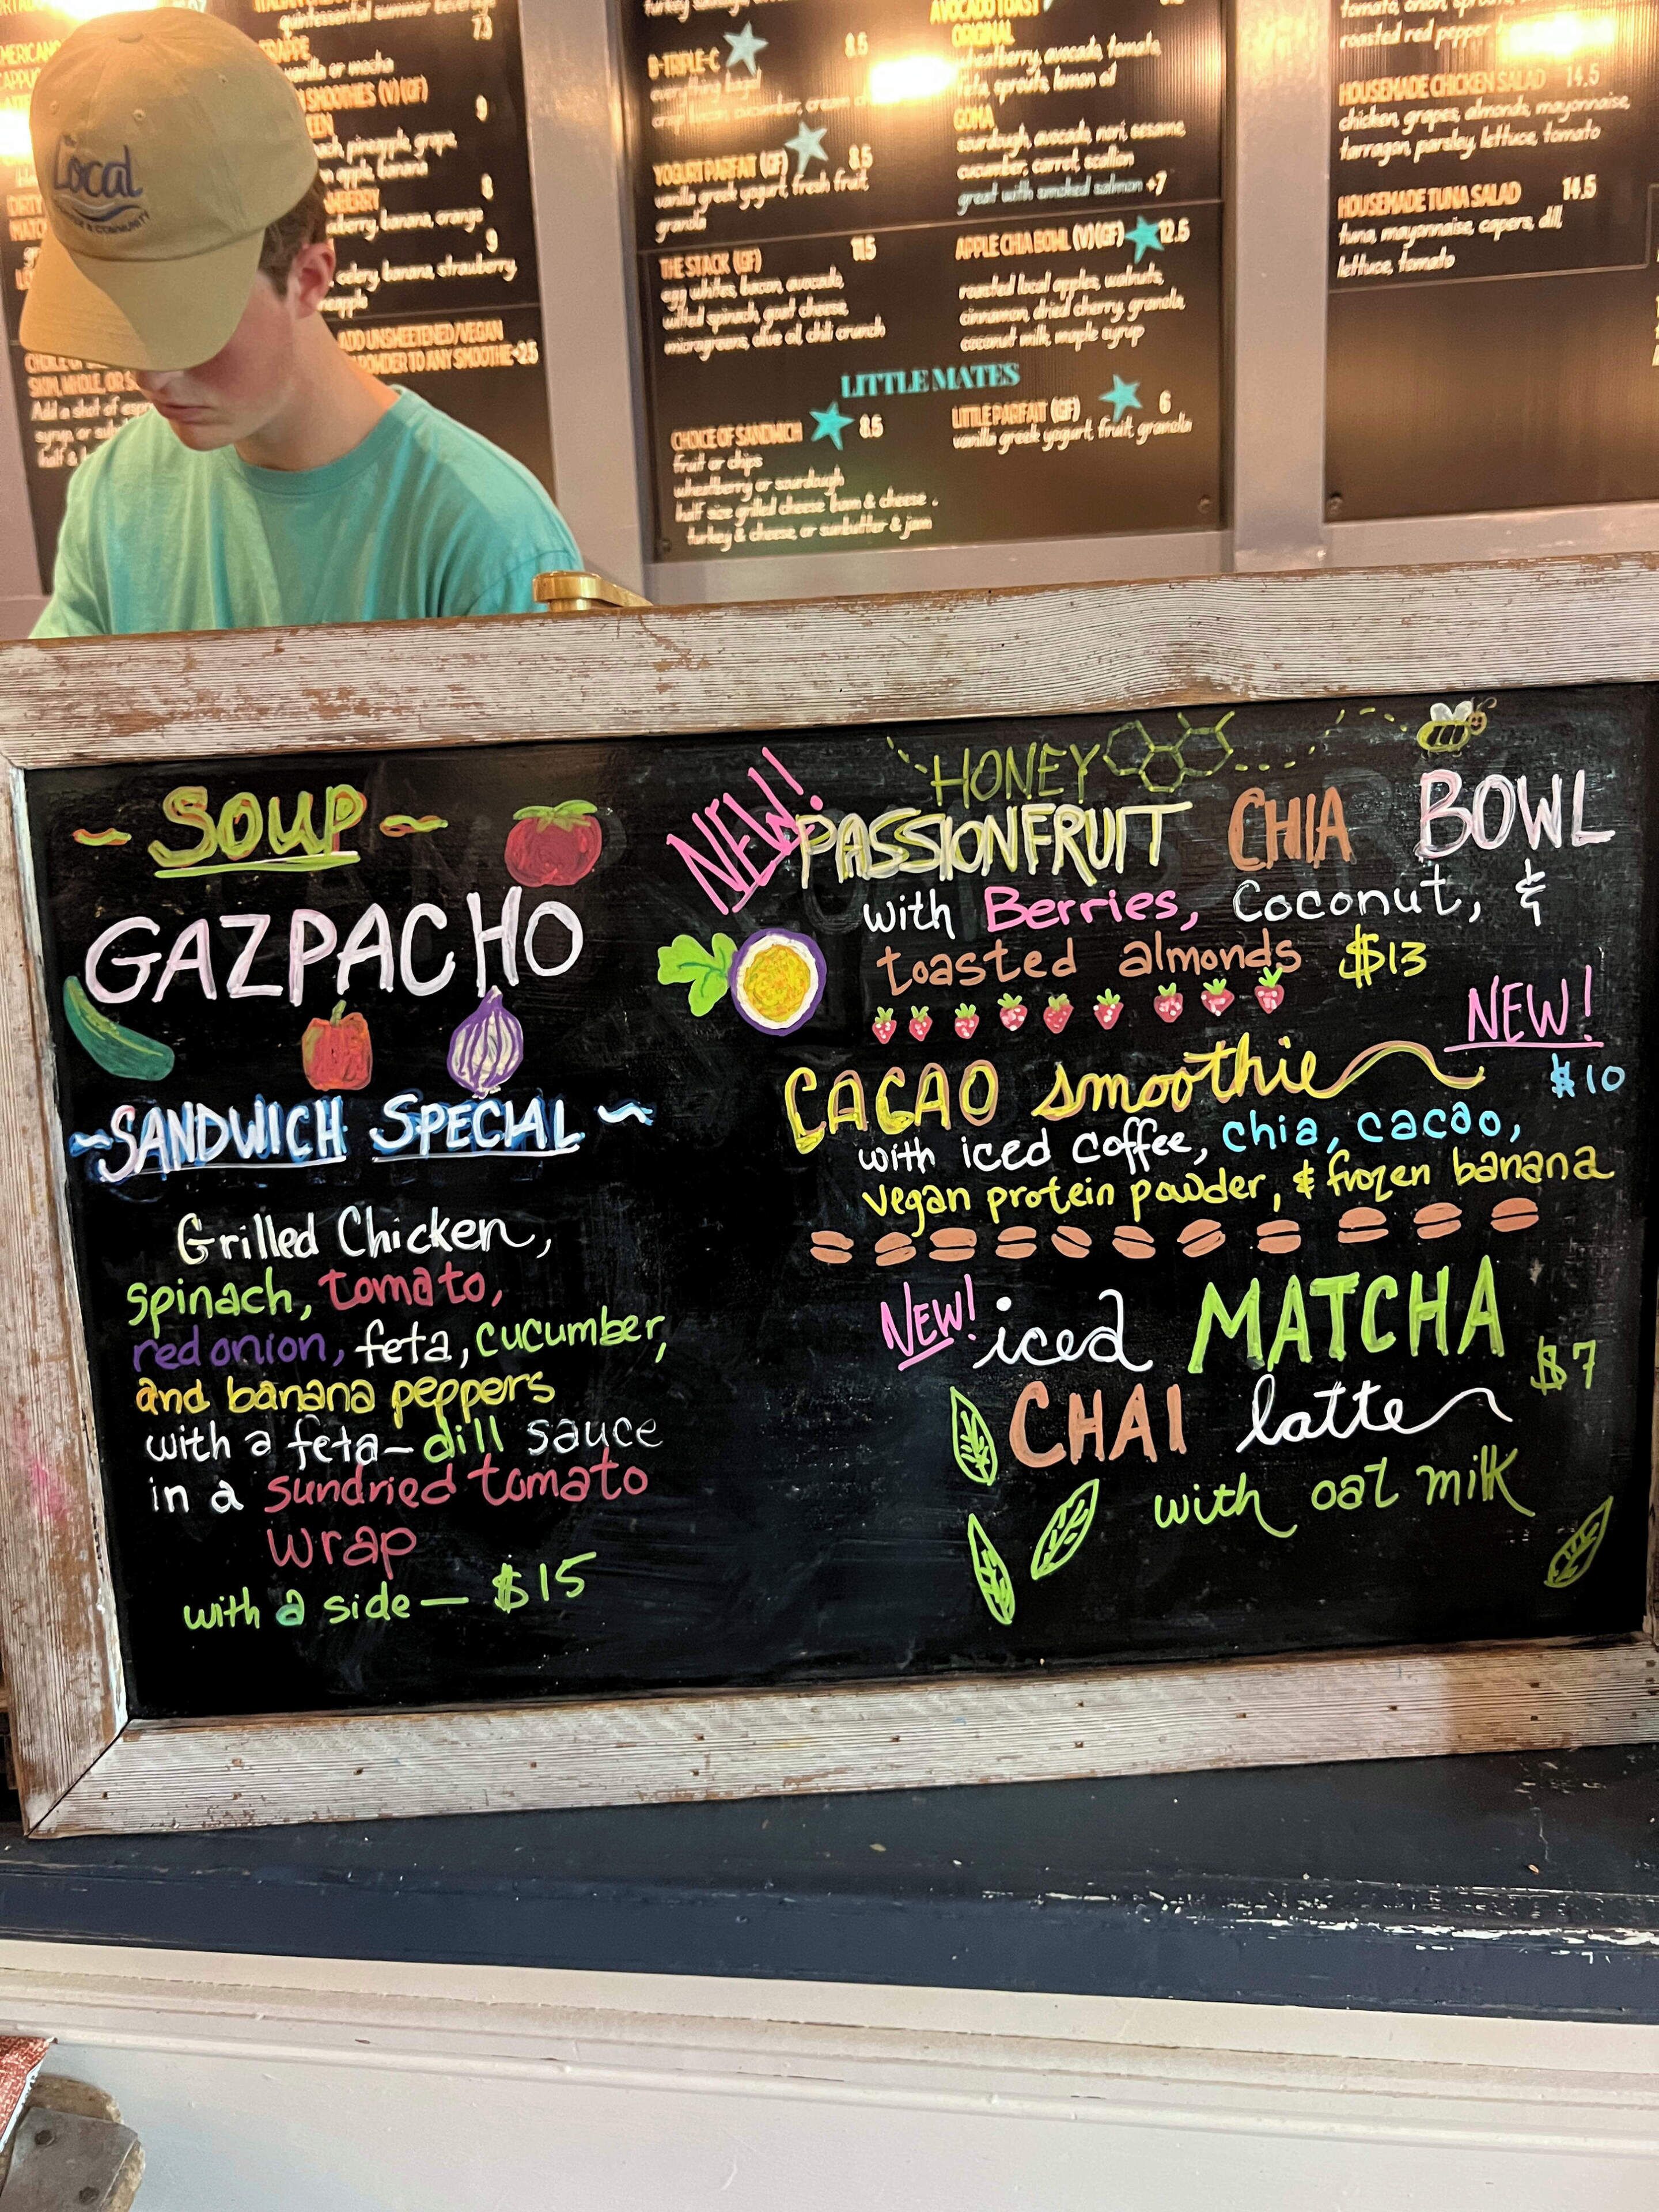 Local
& COMMUNITY
quintessential summer beverage
7.5
FRAPPE
vanilla or mocha
SMOOTHIES (V)(GF)
9
pineapple, grape,
apple, banana
8
banana, orange
9
celery, banana, strawberry,
ADD UNSWEETENED/VEGAN
POWDER TO ANY SMOOTHIE +2.5
SKIM, WHOLE, OR
Add a shot of
B-TRIPLE-C 8.5
everything bagel
cucumber, cream
YOGURT PARFAIT (GF) 8.5
vanilla greek yogurt, fresh fruit,
granola
THE STACK (GF) 11.5
egg whites, bacon, avocado,
wilted spinach, goat cheese,
microgreens, olive oil, chili crunch
AVOCADO TOAST
ORIGINAL
wheatberry, avocado, tomato,
feta, sprouts, lemon oil
GOMA
sourdough, avocado, nori, sesame,
cucumber, carrot, scallion
great with smoked salmon +7
APPLE CHIA BOWL (V)(GF) 12.5
roasted local apples, walnuts,
cinnamon, dried cherry, granola,
coconut milk, maple syrup
LITTLE MATES
CHOICE OF SANDWICH 8.5
fruit or chips
wheatberry or sourdough
half size grilled cheese ham & cheese
turkey & cheese, or sunbutter & jam
LITTLE PARFAIT (GF) 6
vanilla greek yogurt, fruit, granola
roasted red pepper
HOUSEMADE CHICKEN SALAD 14.5
chicken, grapes, almonds, mayonnaise,
tarragon, parsley, lettuce, tomato
HOUSEMADE TUNA SALAD 14.5
tuna, mayonnaise, capers, dill,
lettuce, tomato
~ SOUP ~
GAZPACHO
~SANDWICH SPECIAL~
Grilled Chicken,
spinach, tomato,
red onion, feta, cucumber,
and banana peppers
with a feta-dill sauce
in a sundried tomato
wrap
with a side — $15
NEW!
HONEY
PASSIONFRUIT CHIA BOWL
with Berries, Coconut, &
toasted almonds $13
NEW!
CACAO smoothie $10
with iced coffee, chia, cacao,
vegan protein powder, & frozen banana
NEW! iced MATCHA
CHAI latte $7
with oat milk